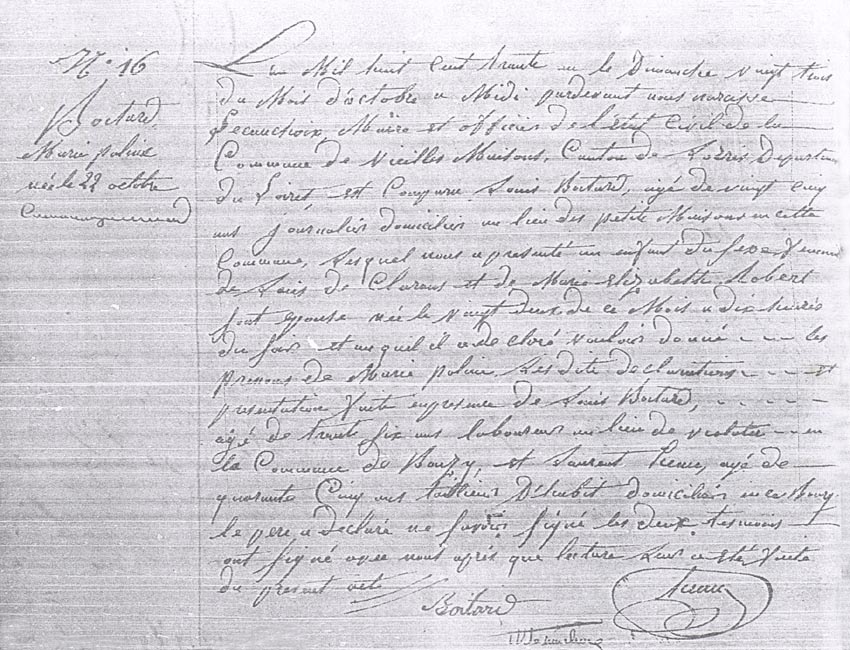 N° 16
Boitard
Marie poline
née le 22 octobre
L'an Mil huit Cent trente un le Dimanche vingt trois
du Mois d'octobre a Midi pardevant nous narcisse
Maire et officier de l'état Civil de la
Commune de Vieilles Maisons, Canton de Lorris Departem
du Loiret, est Comparu Louis Boitard, agé de vingt cinq
ans journalier domicilier au lieu des petite Maisons en cette
Commune, Lequel nous a presenté un enfant du sexe feminin
de Louis de Clarant et de Marie Elizabette Robert
sont epouse née le vingt deux de ce Mois a dix heures
du soir et auquel il a de claré vouloir donné les
prenoms de Marie poline. Les dite declarations et
presentation faite en presence de Louis Boitard,
agé de trente six ans laboureur au lieu de en
la Commune de Bouzy, et Laurent agé de
quarante Cinq ans taillieur D'habit domicilier en ce Bourg
le pere a declaré ne savoir signé les deux tesmoins
ont signé avec nous apres que lecture Leur a eté faite
du present acte
Boitard